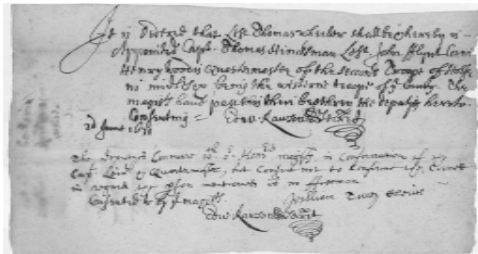 It is Ordered that Left Thomas wheeler shall be & hereby is
Appointed Capt. Thomas Hinchman Left. John Flynt Cornet
Henry woody Quartermaster of the second Troope of horse
in midlesex being the westerne troope of yt County. The
magists have past this their brethren the deputys hereto
Consenting = Edw Rawson Secrety
2d June
The Deputyes Concurre wth or Honrd magists in Confirmation of ye
Capt Leivt & Quartermastr, but Consent not to Confirme the Cornet
in regard the person mentioned is no freeman
Consented to by ye magists William Torrey Cleric
Edw Rawson Secret